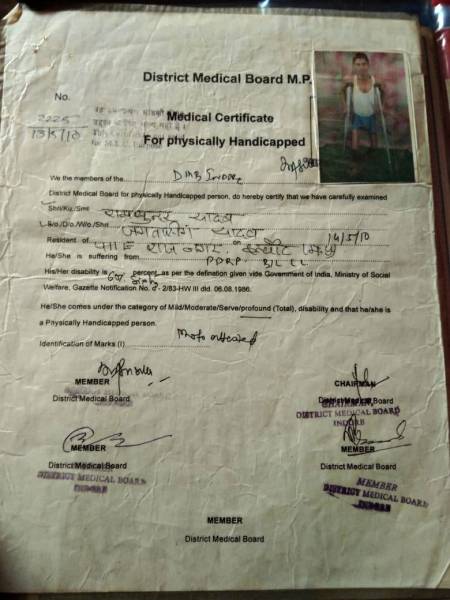 District Medical Board M.P.
No.
2225
13/5/10
Medical Certificate
For physically Handicapped
We the members of the DMB Indore
District Medical Board for physically Handicapped person, do hereby certify that we have carefully examined
Shri/Ku./Smt रामकुमार यादव
S/o./D/o./W/o./Shri यादव
14/5/10
Resident of
He/She is suffering from PPRP B/L LL
His/Her disability is percent, as per the defination given vide Government of India, Ministry of Social
Welfare, Gazette Notification No. 2-83/HW III dtd. 06.08.1986.
He/She comes under the category of Mild/Moderate/Serve/profound (Total), disability and that he/she is
a Physically Handicapped person.
Identification of Marks (I) Photo attested
MEMBER
District Medical Board
CHAIRMAN
District Medical Board
CHAIRMAN
DISTRICT MEDICAL BOARD
INDORE
MEMBER
District Medical Board
DISTRICT MEDICAL BOARD
INDORE
MEMBER
District Medical Board
MEMBER
DISTRICT MEDICAL BOARD
INDORE
MEMBER
District Medical Board